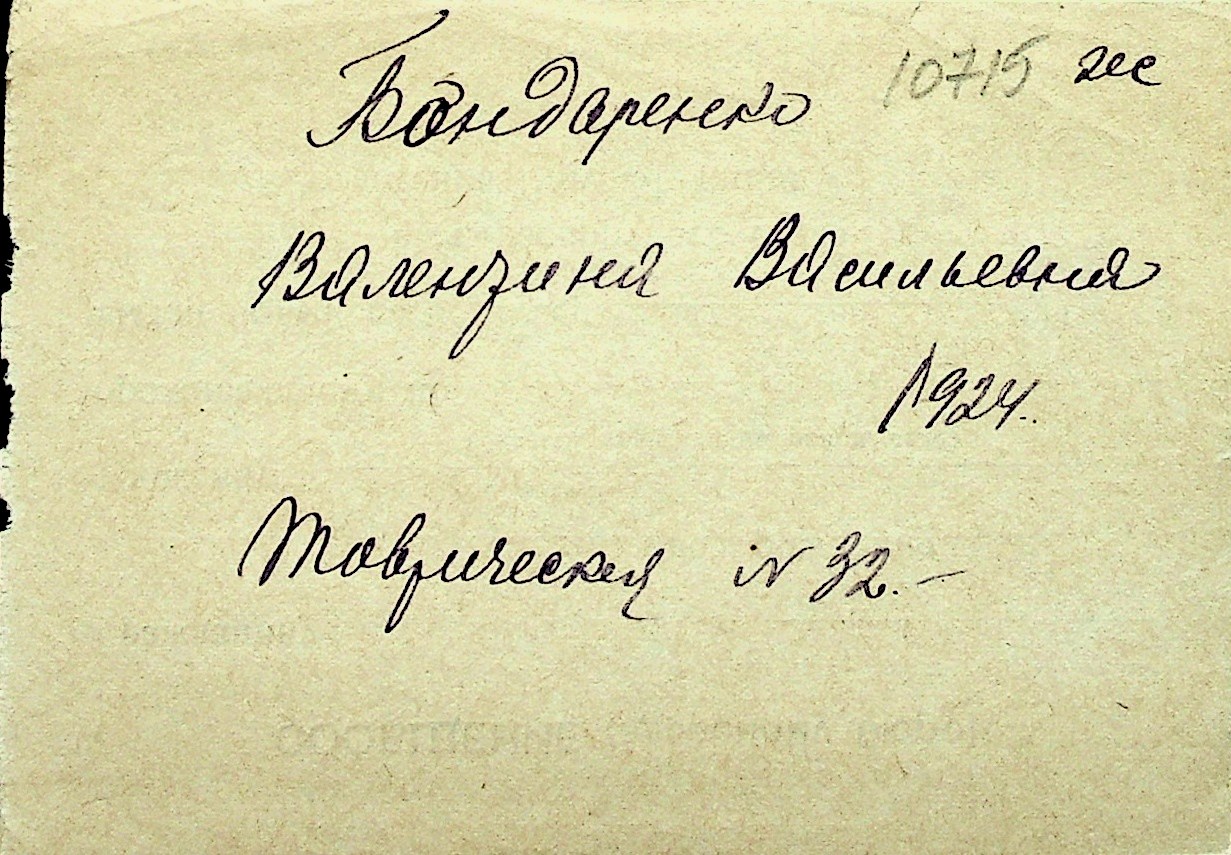 Бондаренко 10715 ж
Валентина Васильевна
1924.
Таврическая N 32.–